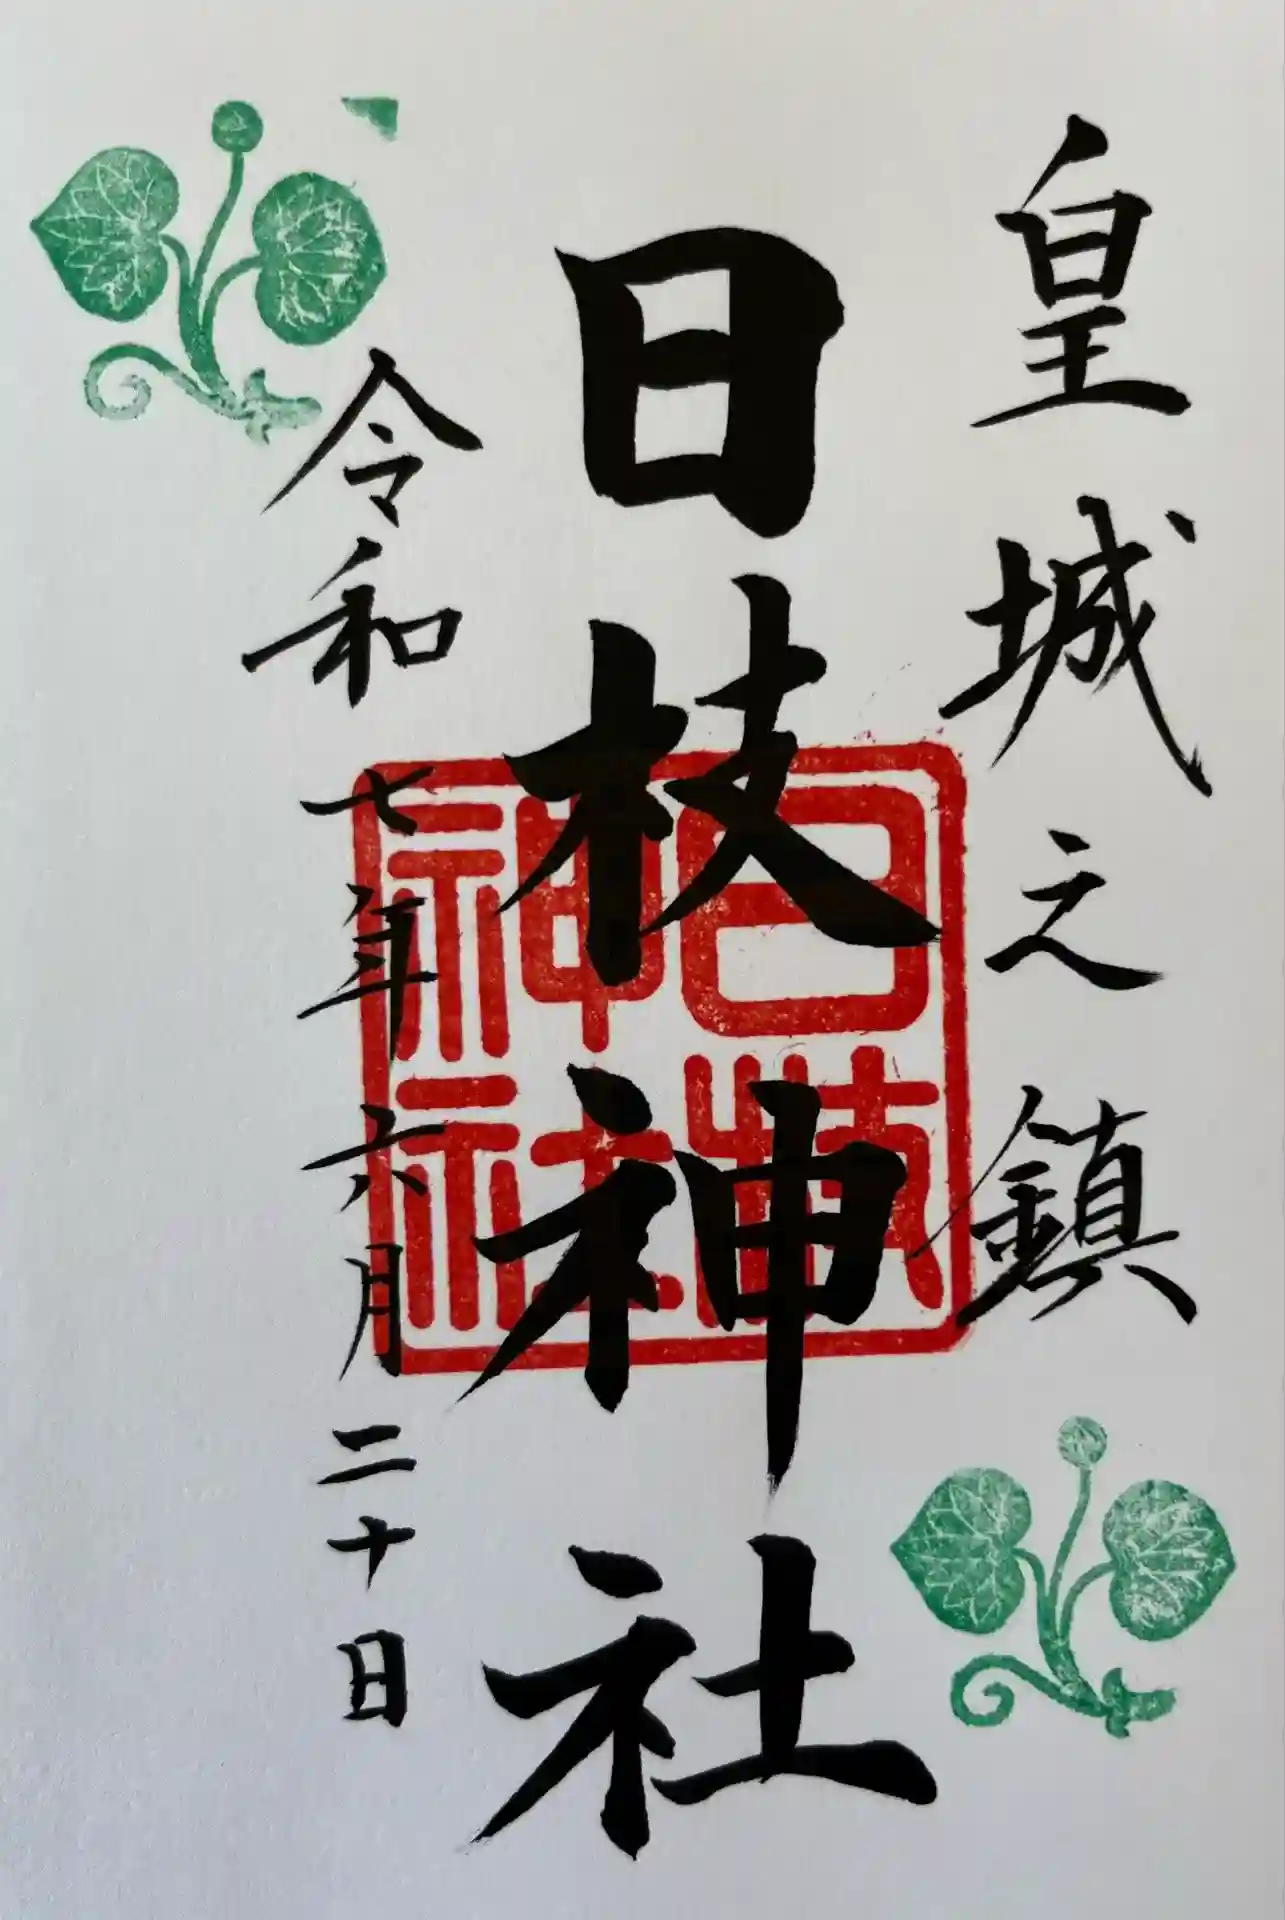 皇城之鎮
日枝神社
日枝
神社
令和七年六月二十日